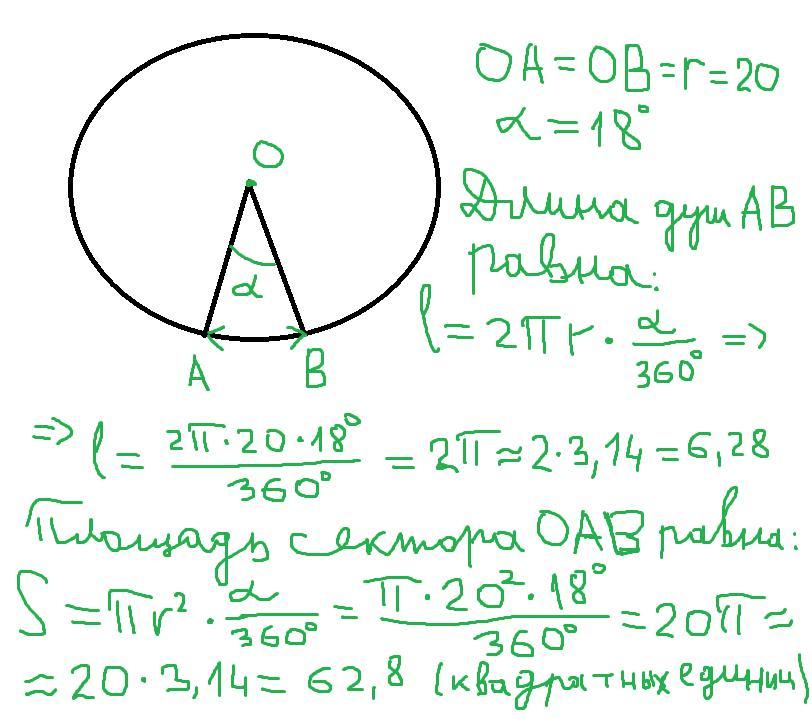 OA = OB = r = 20
α = 18°
O
α
A
B
Длина дуги AB
равна:
l = 2πr · α/360° =>
=> l = 2π·20·18°/360° = 2π ≈ 2·3,14 = 6,28
Площадь сектора OAB равна:
S = πr² · α/360° = π·20²·18°/360° = 20π ≈
≈ 20·3,14 = 62,8 (квадратных единиц)